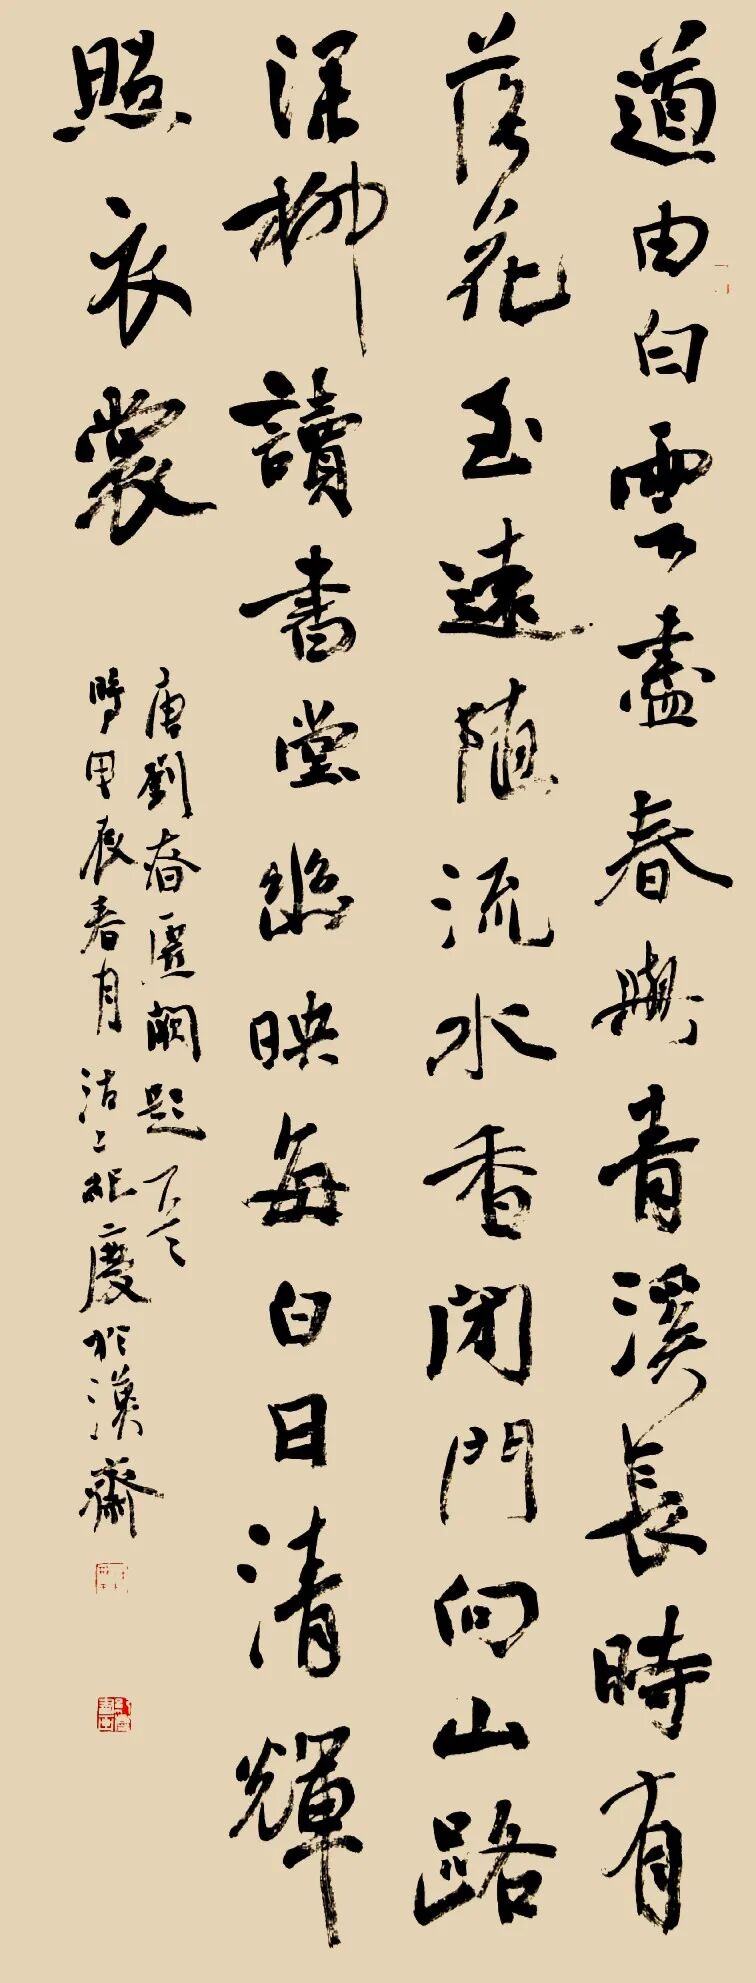 道由白雲盡春與青溪長時有
落花至遠隨流水香閉門向山路
深柳讀書堂幽映每白日清輝
照衣裳
唐劉昚虛闕題
時甲辰春月沽上慶於漢齋